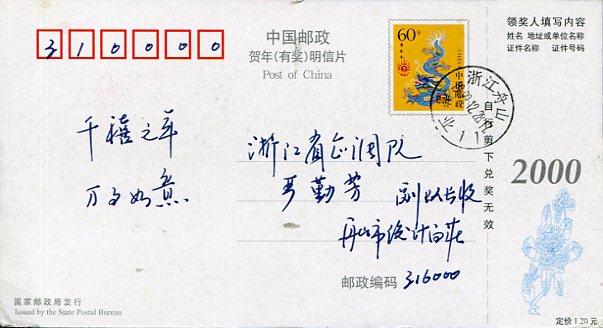 310000
中国邮政
贺年(有奖)明信片
Post of China
60分
庚辰年
CHINA
中国邮政
浙江舟山
领奖人填写内容
姓名 地址或单位名称
证件名称 证件号码
自行剪下兑奖无效
千禧之年
万事如意
浙江省
勤芳 副 长收
舟山市统计局 庄
邮政编码 316000
2000
国家邮政局发行
Issued by the State Postal Bureau
定价1.20元